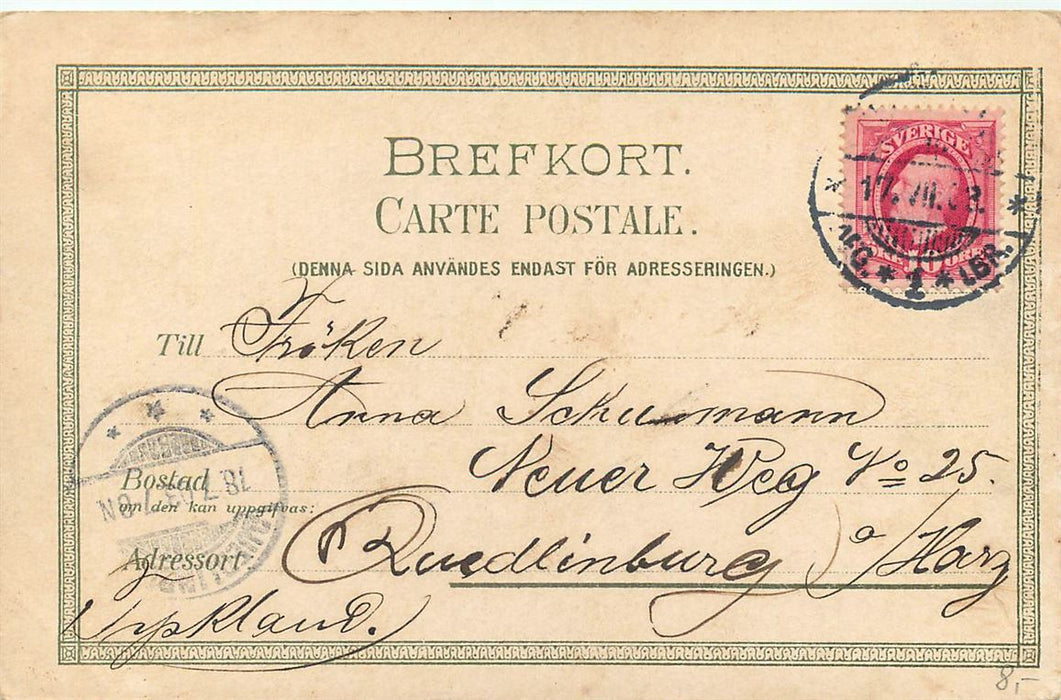 BREFKORT.
CARTE POSTALE.
(DENNA SIDA ANVÄNDES ENDAST FÖR ADRESSERINGEN.)
SVERIGE
17. VII.
LBR. * 1 *
10 ÖRE
Till Fröken
Anna Schumann
Neuer Weg No 25.
Bostad
om den kan uppgifvas:
Adressort: Quedlinburg a/Harz
Tyskland.
18.7
8,-